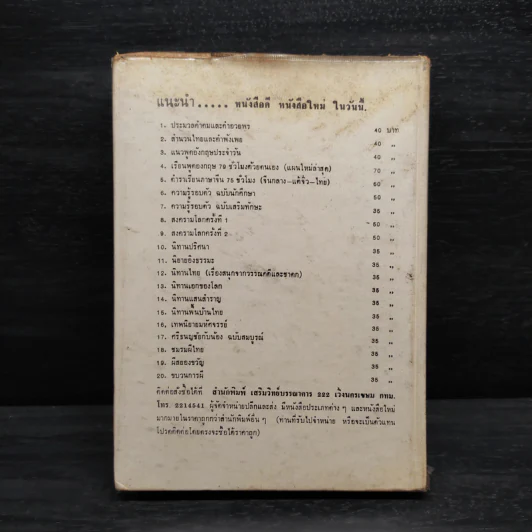 แนะนำ..... หนังสือดี หนังสือใหม่ ในวันนี้.
1. ประมวลคำคมและคำอวยพร 40 บาท
2. สำนวนไทยและคำพังเพย 40 "
3. แนวพูดอังกฤษประจำวัน 40 "
4. เรียนพูดอังกฤษ 79 ชั่วโมงด้วยตนเอง (แผนใหม่ล่าสุด) 70 "
5. ตำราเรียนภาษาจีน 75 ชั่วโมง (จีนกลาง—แต้จิ๋ว—ไทย) 60 "
6. ความรู้รอบตัว ฉบับนักศึกษา 50 "
7. ความรู้รอบตัว ฉบับเสริมทักษะ 35 "
8. สงครามโลกครั้งที่ 1 50 "
9. สงครามโลกครั้งที่ 2 50 "
10. นิทานปริศนา 35 "
11. นิยายอิงธรรมะ 35 "
12. นิทานไทย (เรื่องสนุกจากวรรณคดีและชาดก) 35 "
13. นิทานเอกของโลก 35 "
14. นิทานแสนสำราญ 35 "
15. นิทานพื้นบ้านไทย 35 "
16. เทพนิยายมหัศจรรย์ 35 "
17. ศรีธนญชัยกับน้อง ฉบับสมบูรณ์ 35 "
18. ชมรมผีไทย 35 "
19. ผีสยองขวัญ 35 "
20. ขบวนการผี 35 "
ติดต่อสั่งซื้อได้ที่ สำนักพิมพ์ เสริมวิทย์บรรณาคาร 222 เวิ้งนครเขษม กทม.
โทร. 2214541 ผู้จัดจำหน่ายปลีกและส่ง มีหนังสือประเภทต่าง ๆ และหนังสือใหม่
มากมายในราคาถูกกว่าสำนักพิมพ์อื่น ๆ (ท่านที่รับไปจำหน่าย หรือจะเป็นตัวแทน
โปรดติดต่อโดยตรงจะซื้อได้ราคาถูก)